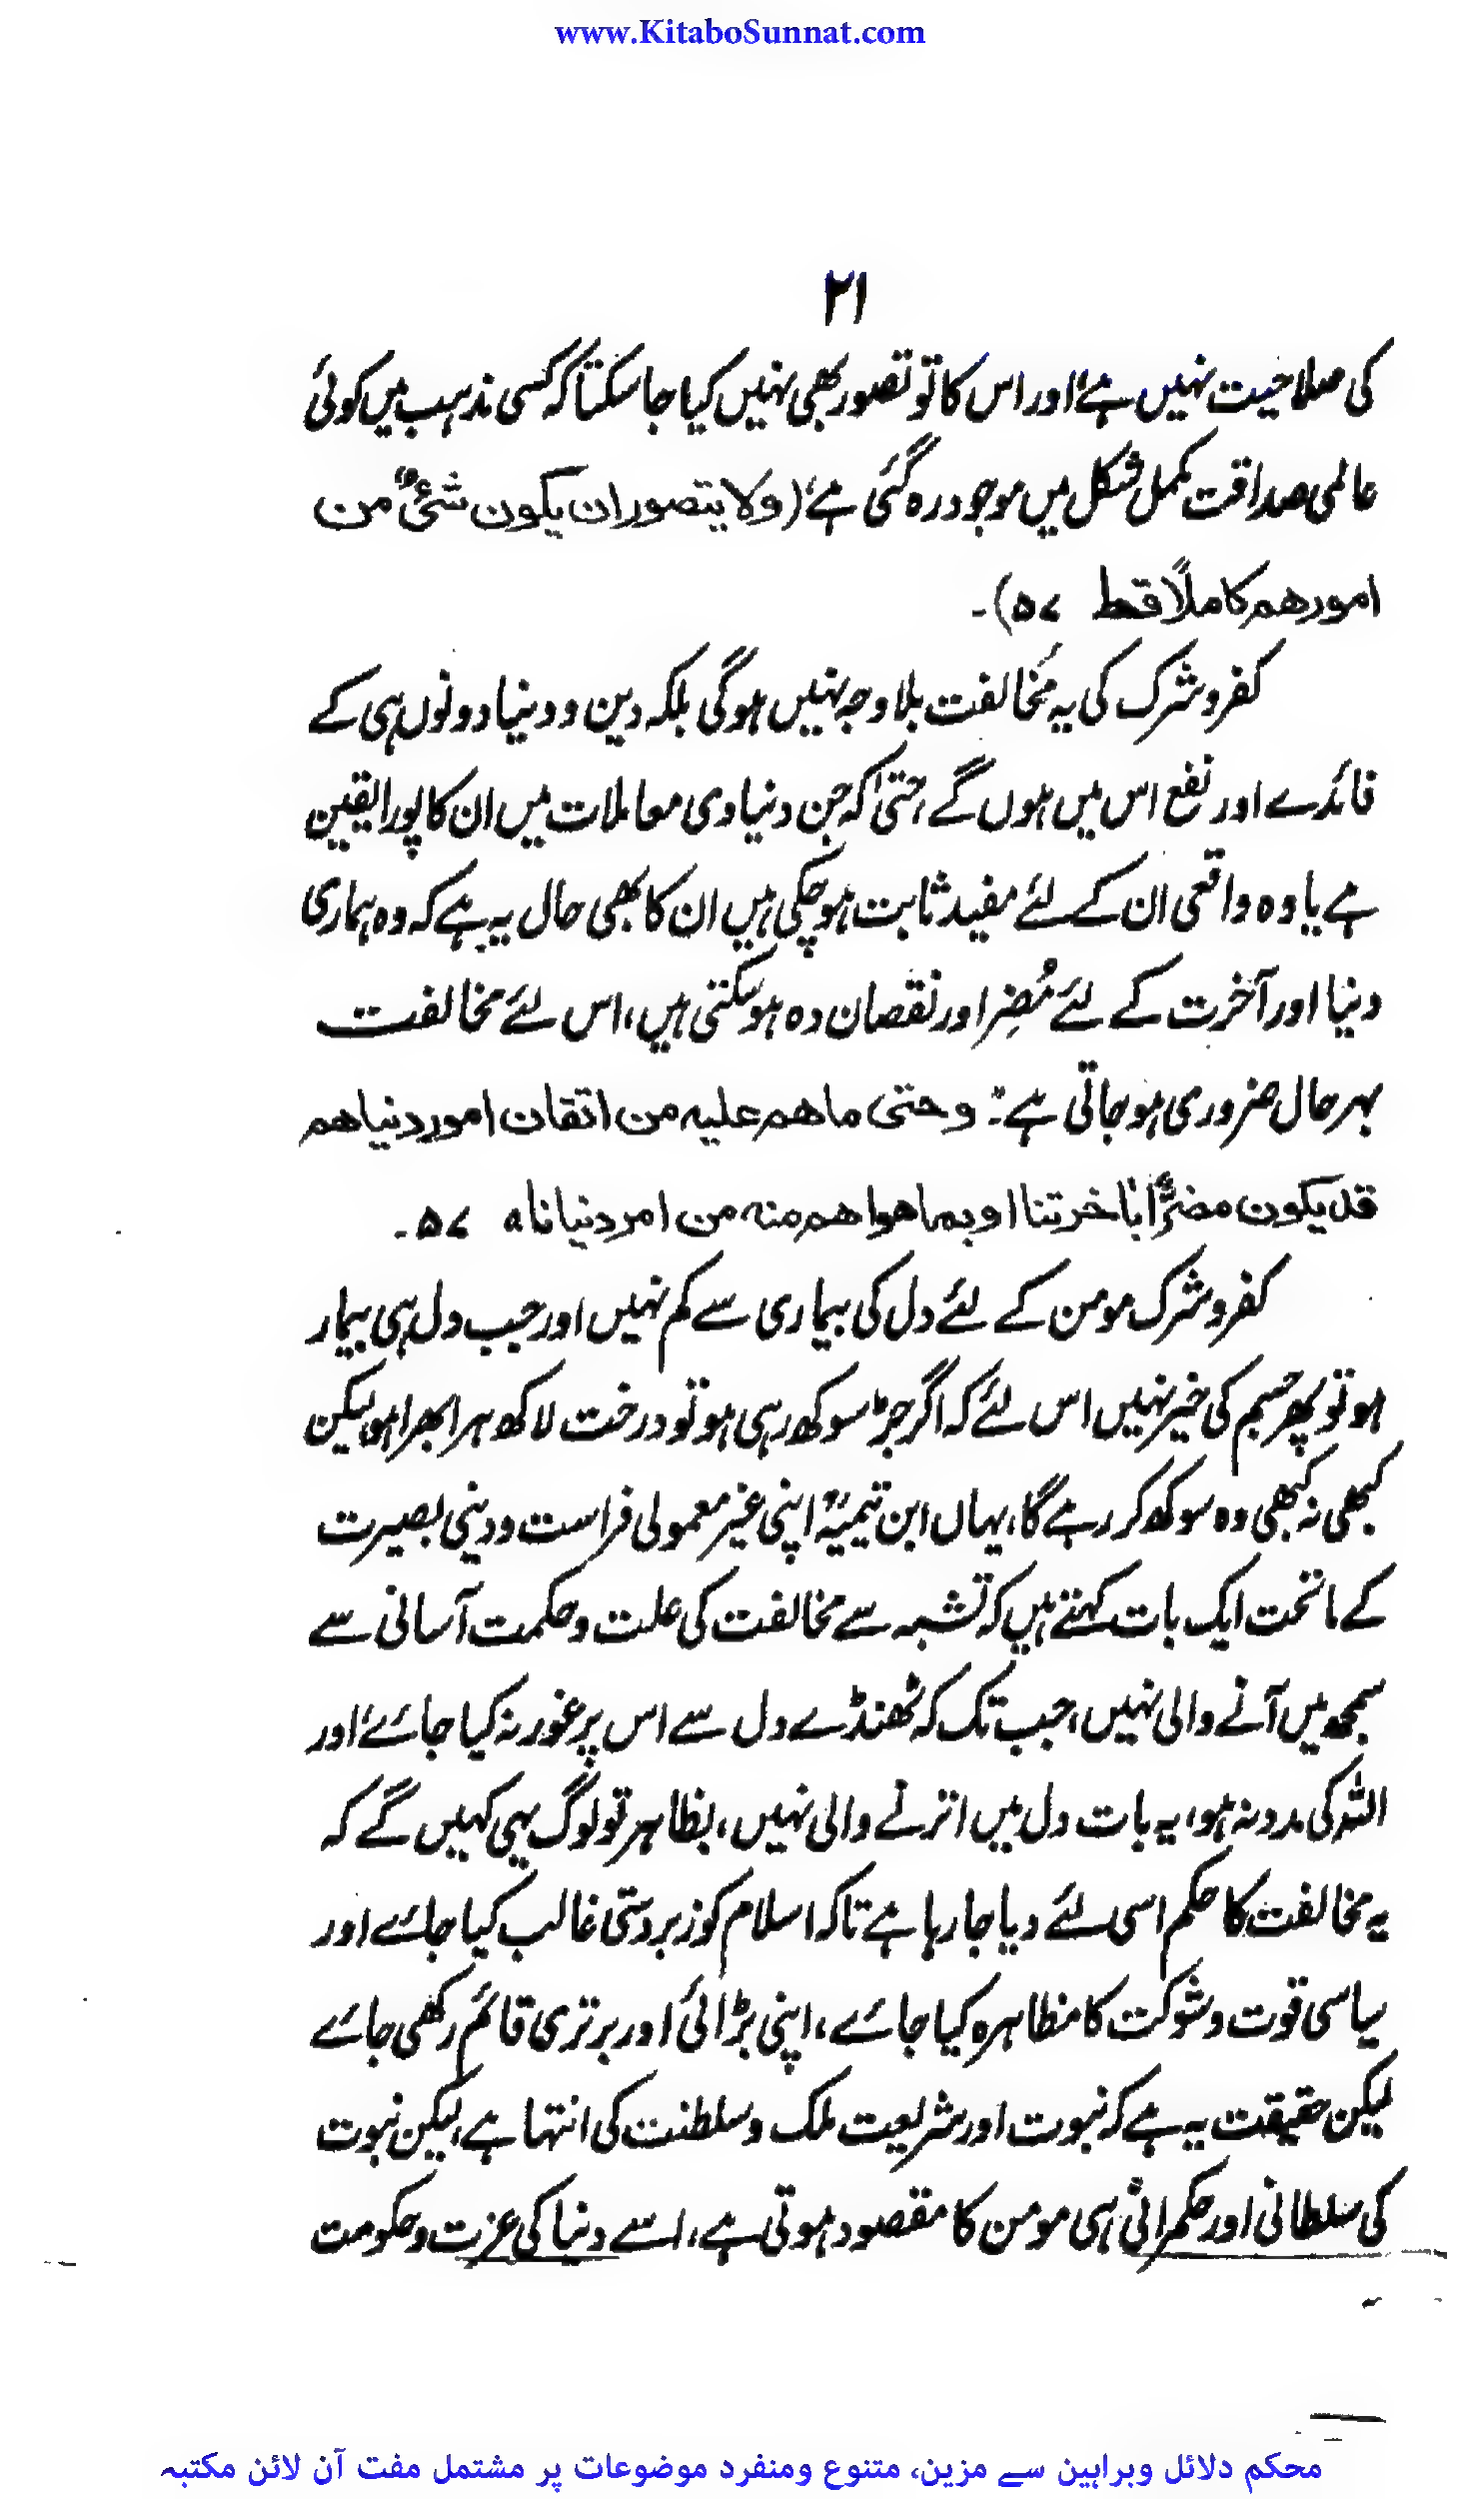 www.KitaboSunnat.com
۲۱
کی صلاحیت نہیں ہے، اور اس کا تو تصور بھی نہیں کیا جا سکتا کہ کسی مذہب میں کوئی
عالمی صداقت مکمل شکل میں موجود رہ گئی ہے، (ولا یتصور ان یکون شئیٌ من
امورھم کاملاً قط ۵۷)۔
کفر و شرک کی یہ مخالفت بلاوجہ نہیں ہوگی بلکہ دین و دنیا دونوں ہی کے
فائدے اور نفع اس میں ہوں گے، حتیٰ کہ جن دنیاوی معاملات میں ان کا پورا یقین
ہے یا وہ واقعی ان کے لئے مفید ثابت ہو چکی ہیں ان کا بھی حال یہ ہے کہ وہ ہماری
دنیا اور آخرت کے لئے مُضِر اور نقصان دہ ہو سکتی ہیں، اس لئے مخالفت
بہر حال ضروری ہو جاتی ہے: وحتی ماھم علیہ من اتقان امور دنیاھم
قد یکون مضرًّا بآخرتنا او بما ھو اھم منہ من امر دنیانا ہ ۵۷۔
کفر و شرک مومن کے لئے دل کی بیماری سے کم نہیں اور جب دل ہی بیمار
ہو تو پھر جسم کی خیر نہیں اس لئے کہ اگر جڑ سوکھ رہی ہو تو درخت لاکھ ہرا بھرا ہو لیکن
کبھی نہ کبھی وہ سوکھ کر رہے گا، یہاں ابن تیمیہؒ اپنی غیر معمولی فراست و دینی بصیرت
کے ماتحت ایک بات کہتے ہیں کہ تشبہ سے مخالفت کی علت و حکمت آسانی سے
سمجھ میں آنے والی نہیں، جب تک کہ ٹھنڈے دل سے اس پر غور نہ کیا جائے، اور
اللہ کی مدد نہ ہو، یہ بات دل میں اترنے والی نہیں، بظاہر تو لوگ یہی کہیں گے کہ
یہ مخالفت کا حکم اسی لئے دیا جا رہا ہے تاکہ اسلام کو زبردستی غالب کیا جائے اور
سیاسی قوت و شوکت کا مظاہرہ کیا جائے، اپنی بڑائی اور برتری قائم رکھی جائے
لیکن حقیقت یہ ہے کہ نبوت اور شریعت ملک و سلطنت کی انتہا ہے، لیکن نبوت
کی سلطانی اور حکمرانی ہی مومن کا مقصود ہوتی ہے، اسے دنیا کی عزت و حکومت
محکم دلائل وبراہین سے مزین، متنوع ومنفرد موضوعات پر مشتمل مفت آن لائن مکتبہ